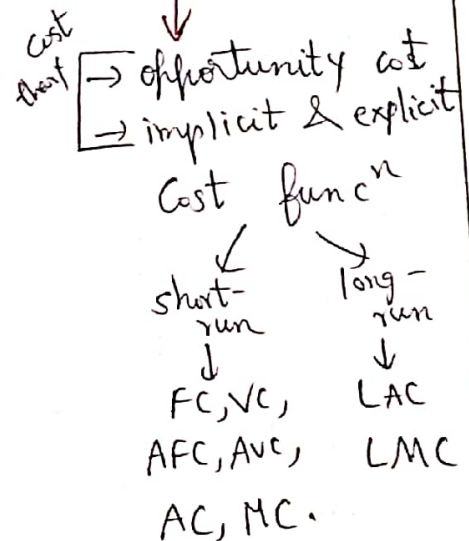 cost
→ opportunity cost
→ implicit & explicit
Cost funcⁿ
short-run long-run
FC, VC, LAC
AFC, AVC, LMC
AC, MC.